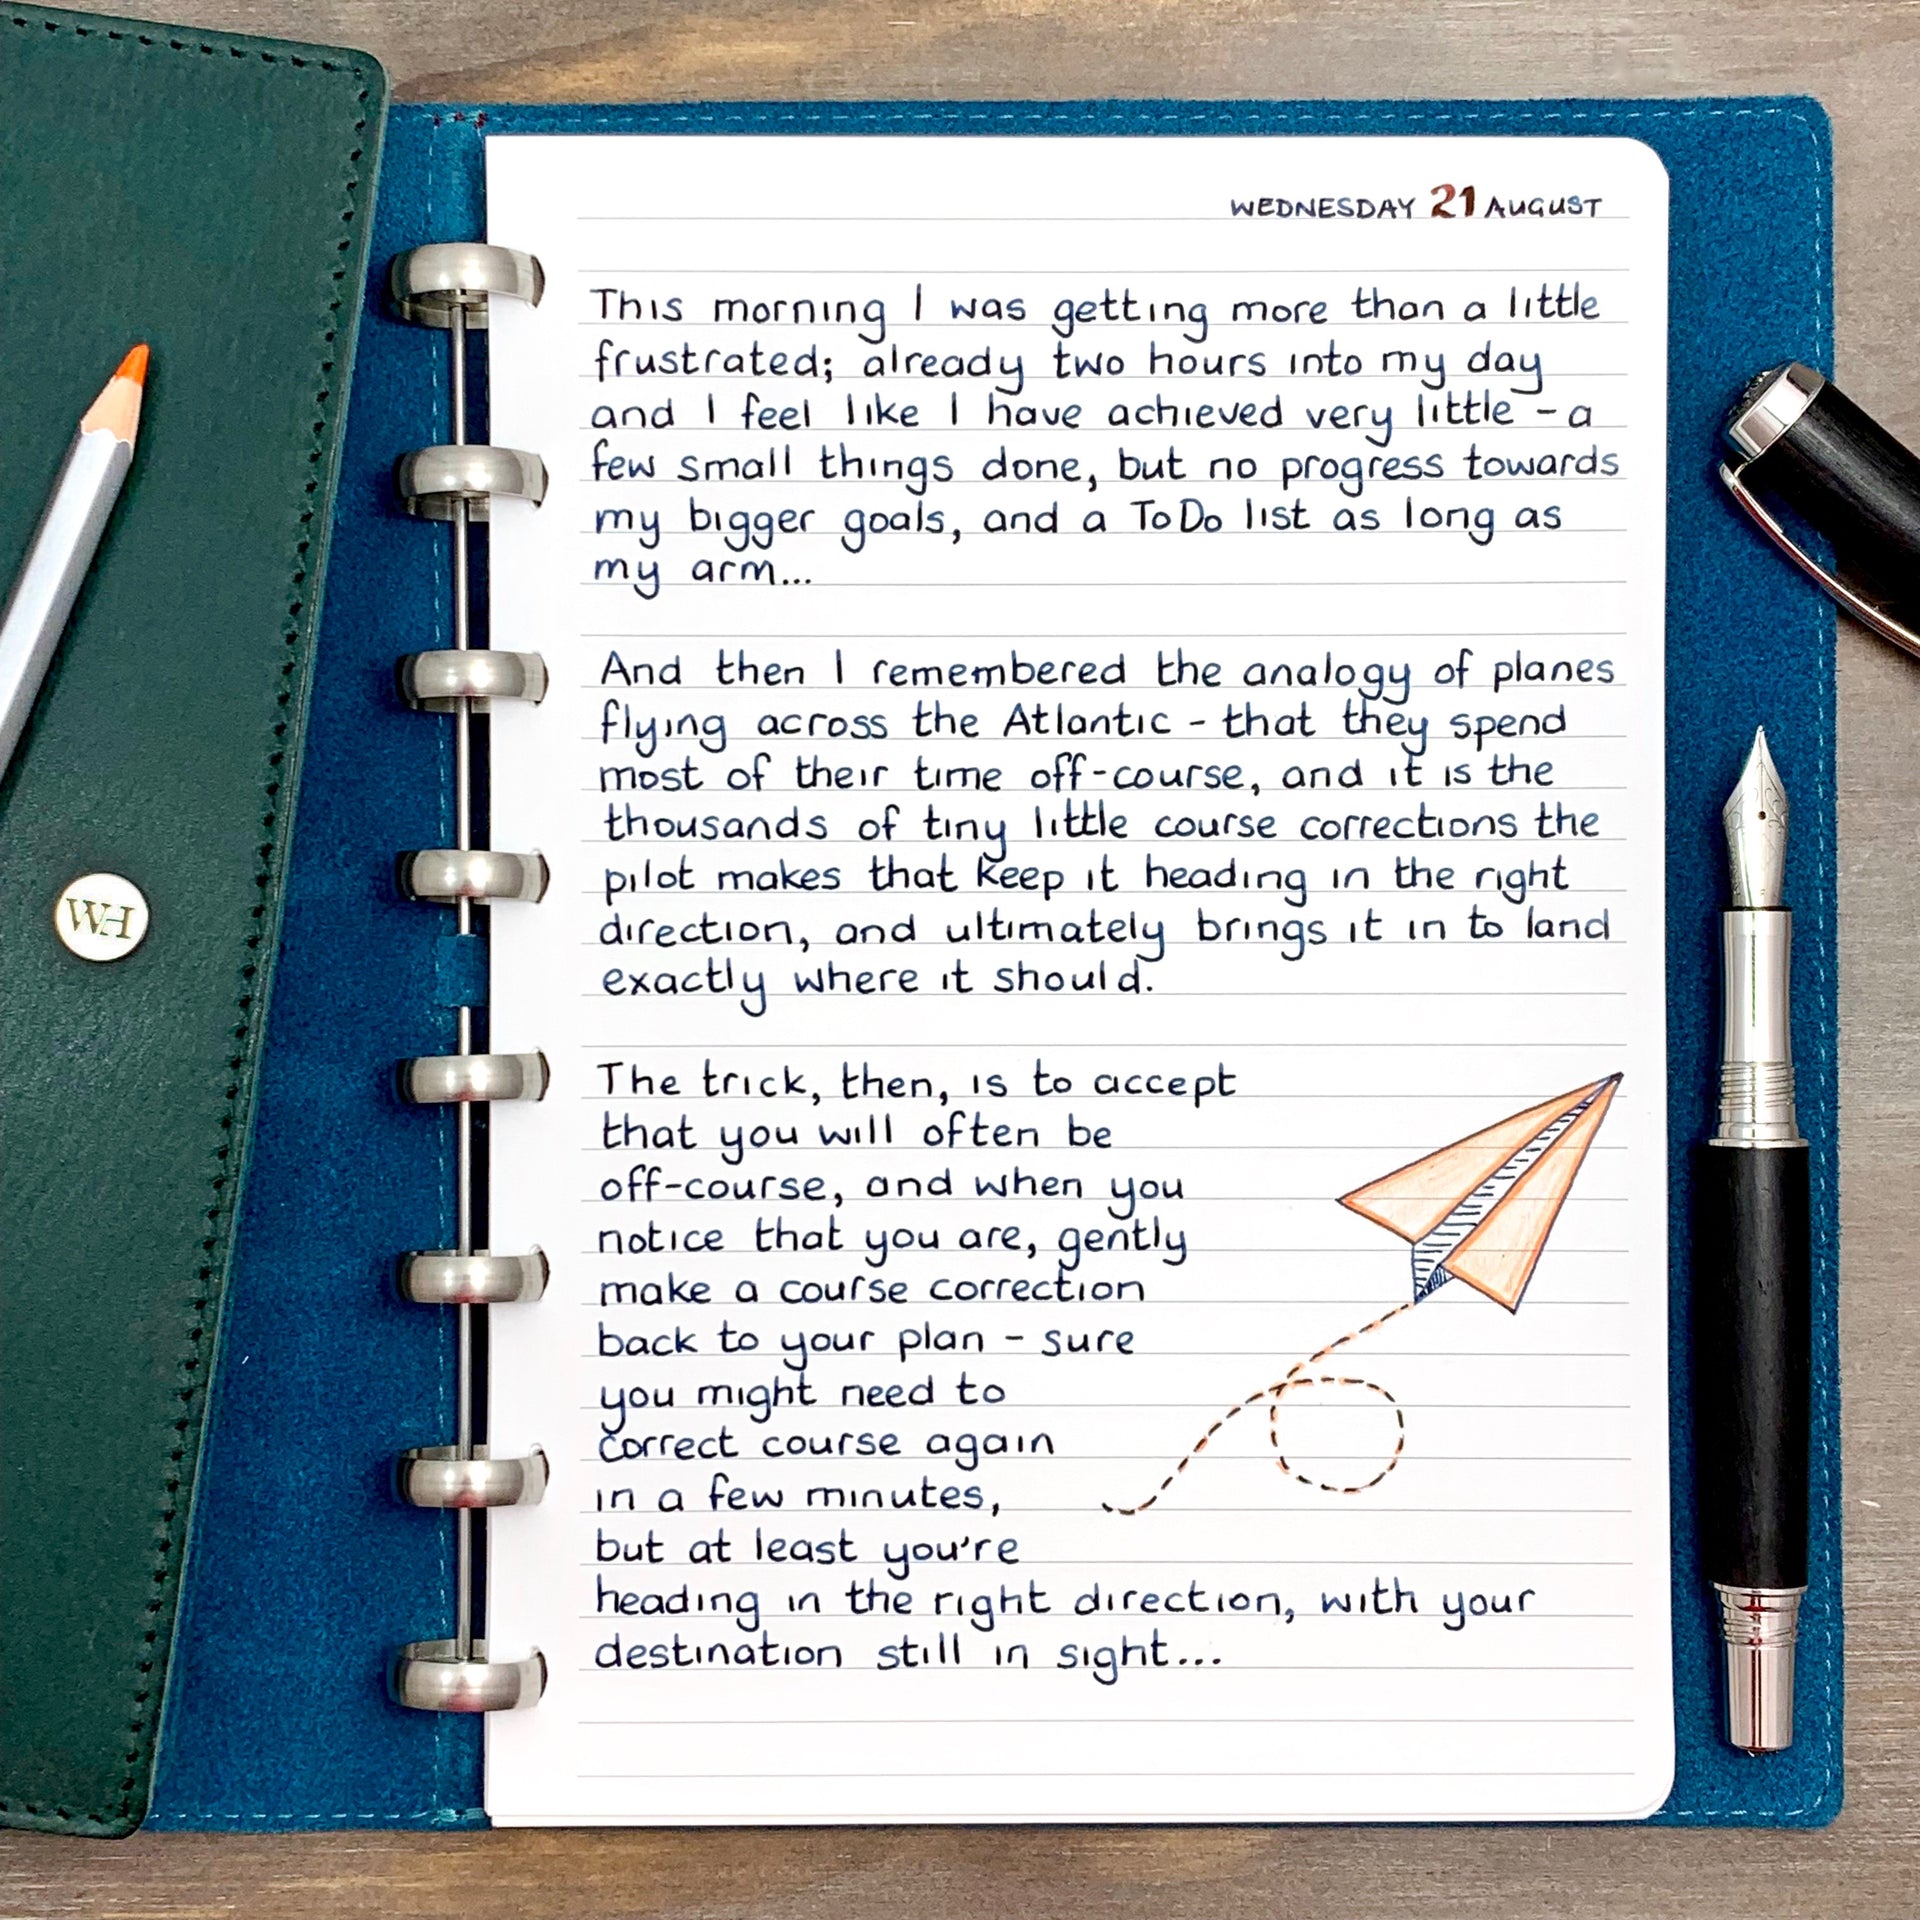 WEDNESDAY 21 AUGUST
This morning I was getting more than a little
frustrated; already two hours into my day
and I feel like I have achieved very little - a
few small things done, but no progress towards
my bigger goals, and a ToDo list as long as
my arm...
And then I remembered the analogy of planes
flying across the Atlantic - that they spend
most of their time off-course, and it is the
thousands of tiny little course corrections the
pilot makes that keep it heading in the right
direction, and ultimately brings it in to land
exactly where it should.
The trick, then, is to accept
that you will often be
off-course, and when you
notice that you are, gently
make a course correction
back to your plan - sure
you might need to
correct course again
in a few minutes,
but at least you're
heading in the right direction, with your
destination still in sight...
WH